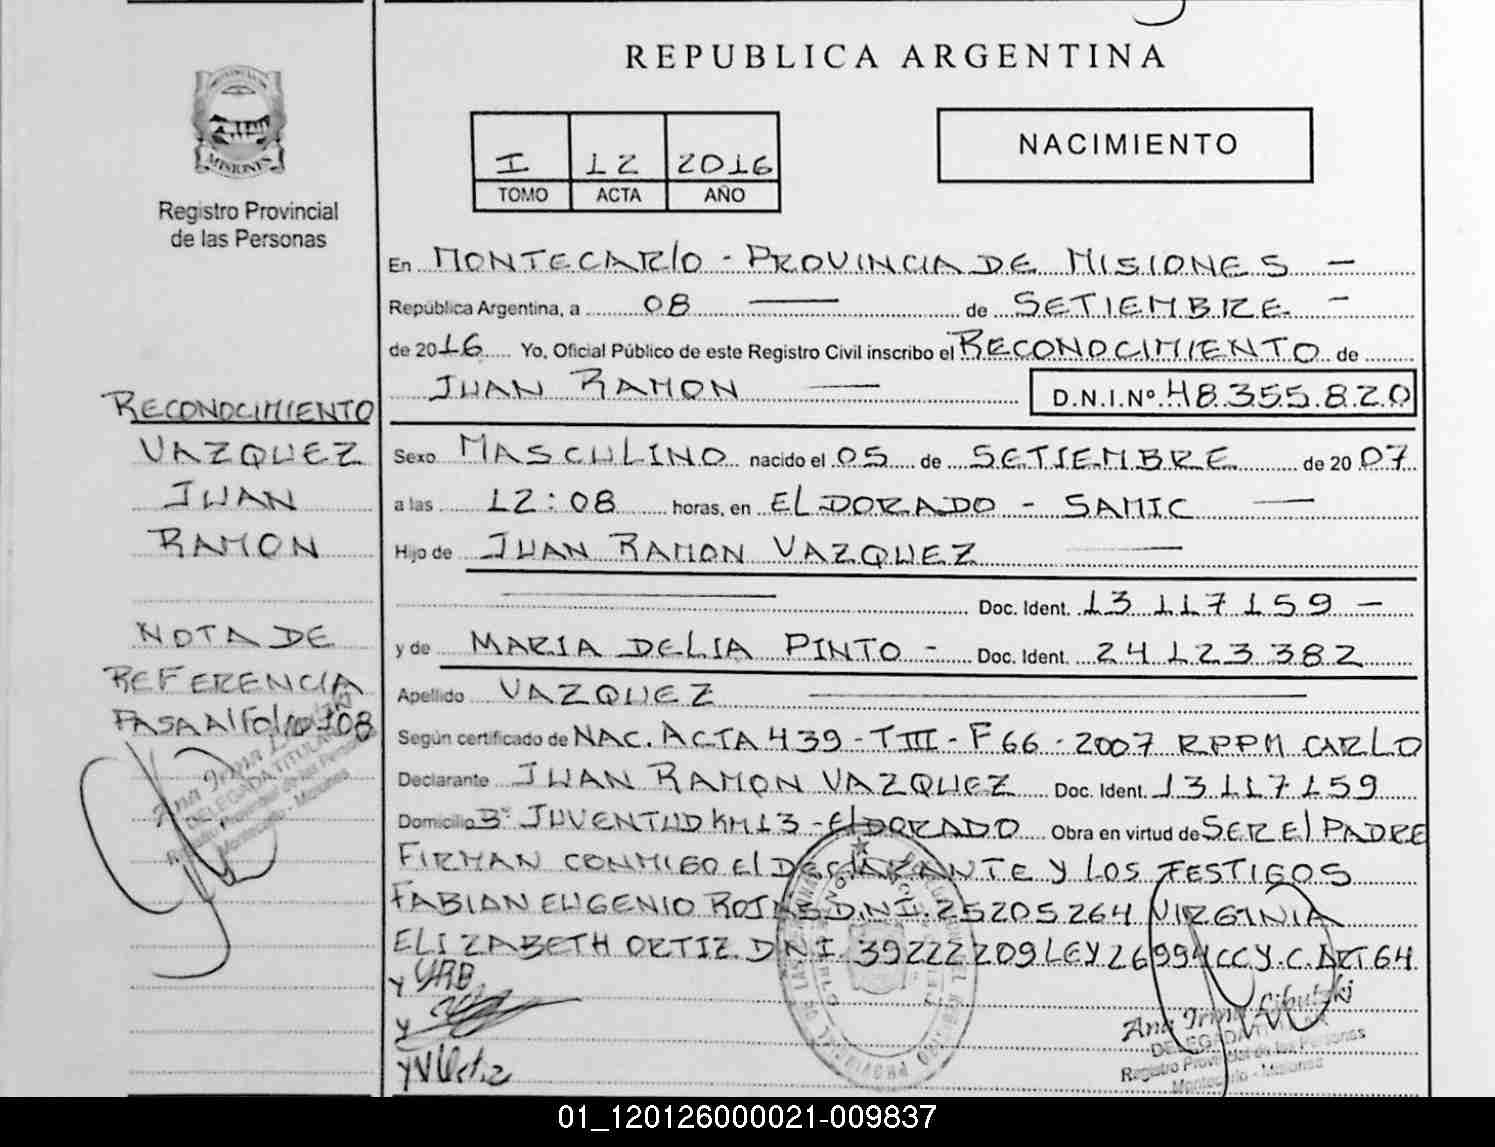 REPUBLICA ARGENTINA
MISIONES
Registro Provincial
de las Personas
I 12 2016
TOMO ACTA AÑO
NACIMIENTO
En MONTECARlO - PROVINCIA DE MISIONES -
Republica Argentina, a 08 de SETIEMBRE -
de 2016 Yo, Oficial Público de este Registro Civil inscribo el RECONOCIMIENTO de
JUAN RAMON D.N.I.Nº. 48.355.820
RECONOCIMIENTO
VAZQUEZ
JUAN
RAMON
NOTA DE
REFERENCIA
PASA Al folio 108
Sexo MASCULINO nacido el 05 de SETIEMBRE de 20 07
a las 12:08 horas, en ELDORADO - SAMIC
Hijo de JUAN RAMON VAZQUEZ
Doc. Ident. 13 117 159 -
y de MARIA DELIA PINTO - Doc. Ident. 24 123 382
Apellido VAZQUEZ
Según certificado de NAC. ACTA 439 - TIII - F 66 - 2007 RPPM CARLO
Declarante JUAN RAMON VAZQUEZ Doc. Ident. 13 117 159
Domicilio Bº JUVENTUD KM 13 - ElDORADO Obra en virtud de SER El PADRE
FIRMAN CONMIGO El DECLARANTE Y LOS TESTIGOS
FABIAN EUGENIO ROJAS D.N.I. 25205264 VIRGINIA
ELIZABETH ORTIZ DNI 39222209 LEY 26994 CC Y.C. ART 64
Ana Irina
DELEGADA TITULAR
Registro Provincial de las Personas
Montecarlo - Misiones
01_120126000021-009837